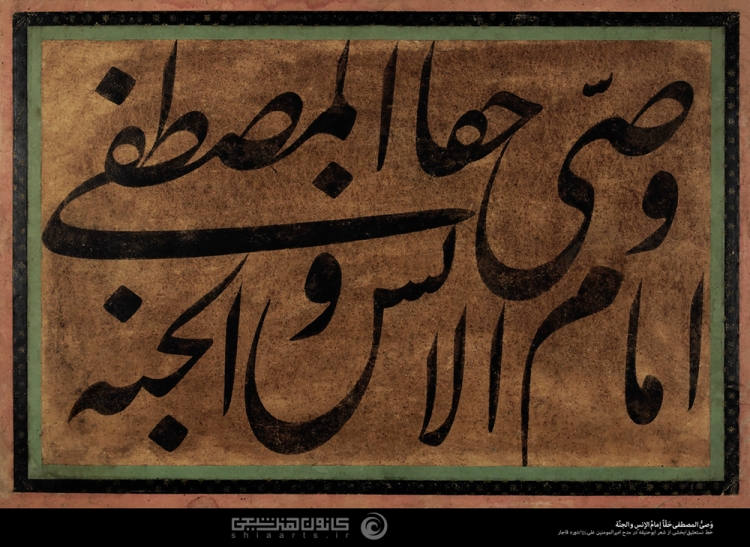 وصیّ المصطفی حقا
امام الانس و الجنه
کانون هنر شیعی
shiaarts.ir
وَصيُّ المصطفى حَقّاً إمامُ الإنسِ و الجنَّة
خط نستعلیق/بخشی از شعر ابوحنیفه در مدح امیرالمومنین علی
دوره قاجار